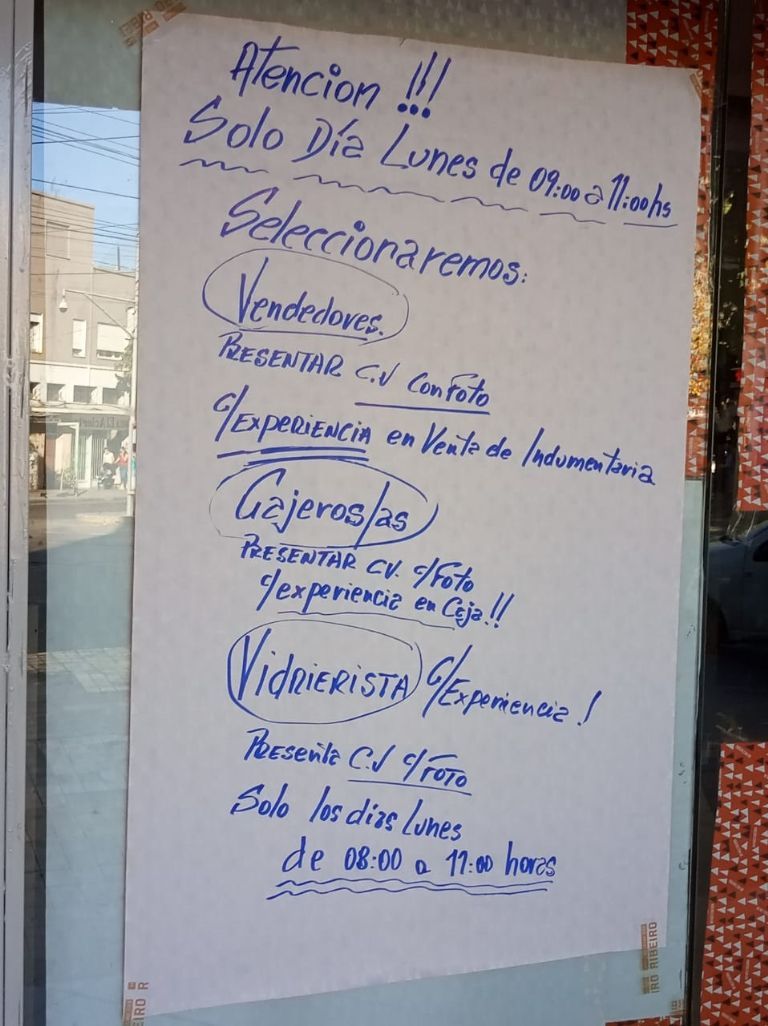 Atencion !!!
Solo Día Lunes de 09:00 a 11:00hs
Seleccionaremos:
Vendedores.
PRESENTAR C.V Con Foto
c/EXPERIENCIA en Venta de Indumentaria
Cajeros/as
PRESENTAR CV. c/Foto
c/experiencia en Caja!!
VIDRIERISTA c/Experiencia!
Presenta C.V c/FOTO
Solo los dias Lunes
de 08:00 a 11:00 horas
IRO RIBEIRO
EIRO R